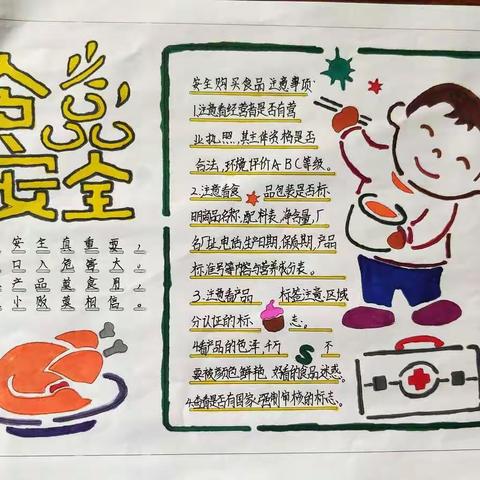 食品
安全
安全真重要，
日入危害大，
产品莫食用，
小贩莫相信。
安全购买食品注意事项：
1.注意看经营者是否自营
业执照,其主体资格是否
合法,环境评价A-B-C等级。
2.注意看食品包装是否标
明商品名称,配料表,净含量,厂
名厂址,电的生产日期,保质期,产品
标准号等内容与营养成分表。
3.注意看产品标签注意区域
分认证的标志。
4.看产品的色泽,千万不
要被颜色鲜艳好看的食品迷惑。
4.查看是否有国家强制审核的标志。